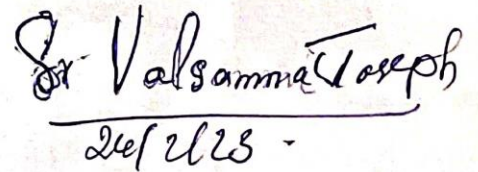 Sr Valsamma Joseph
24/2/23 -